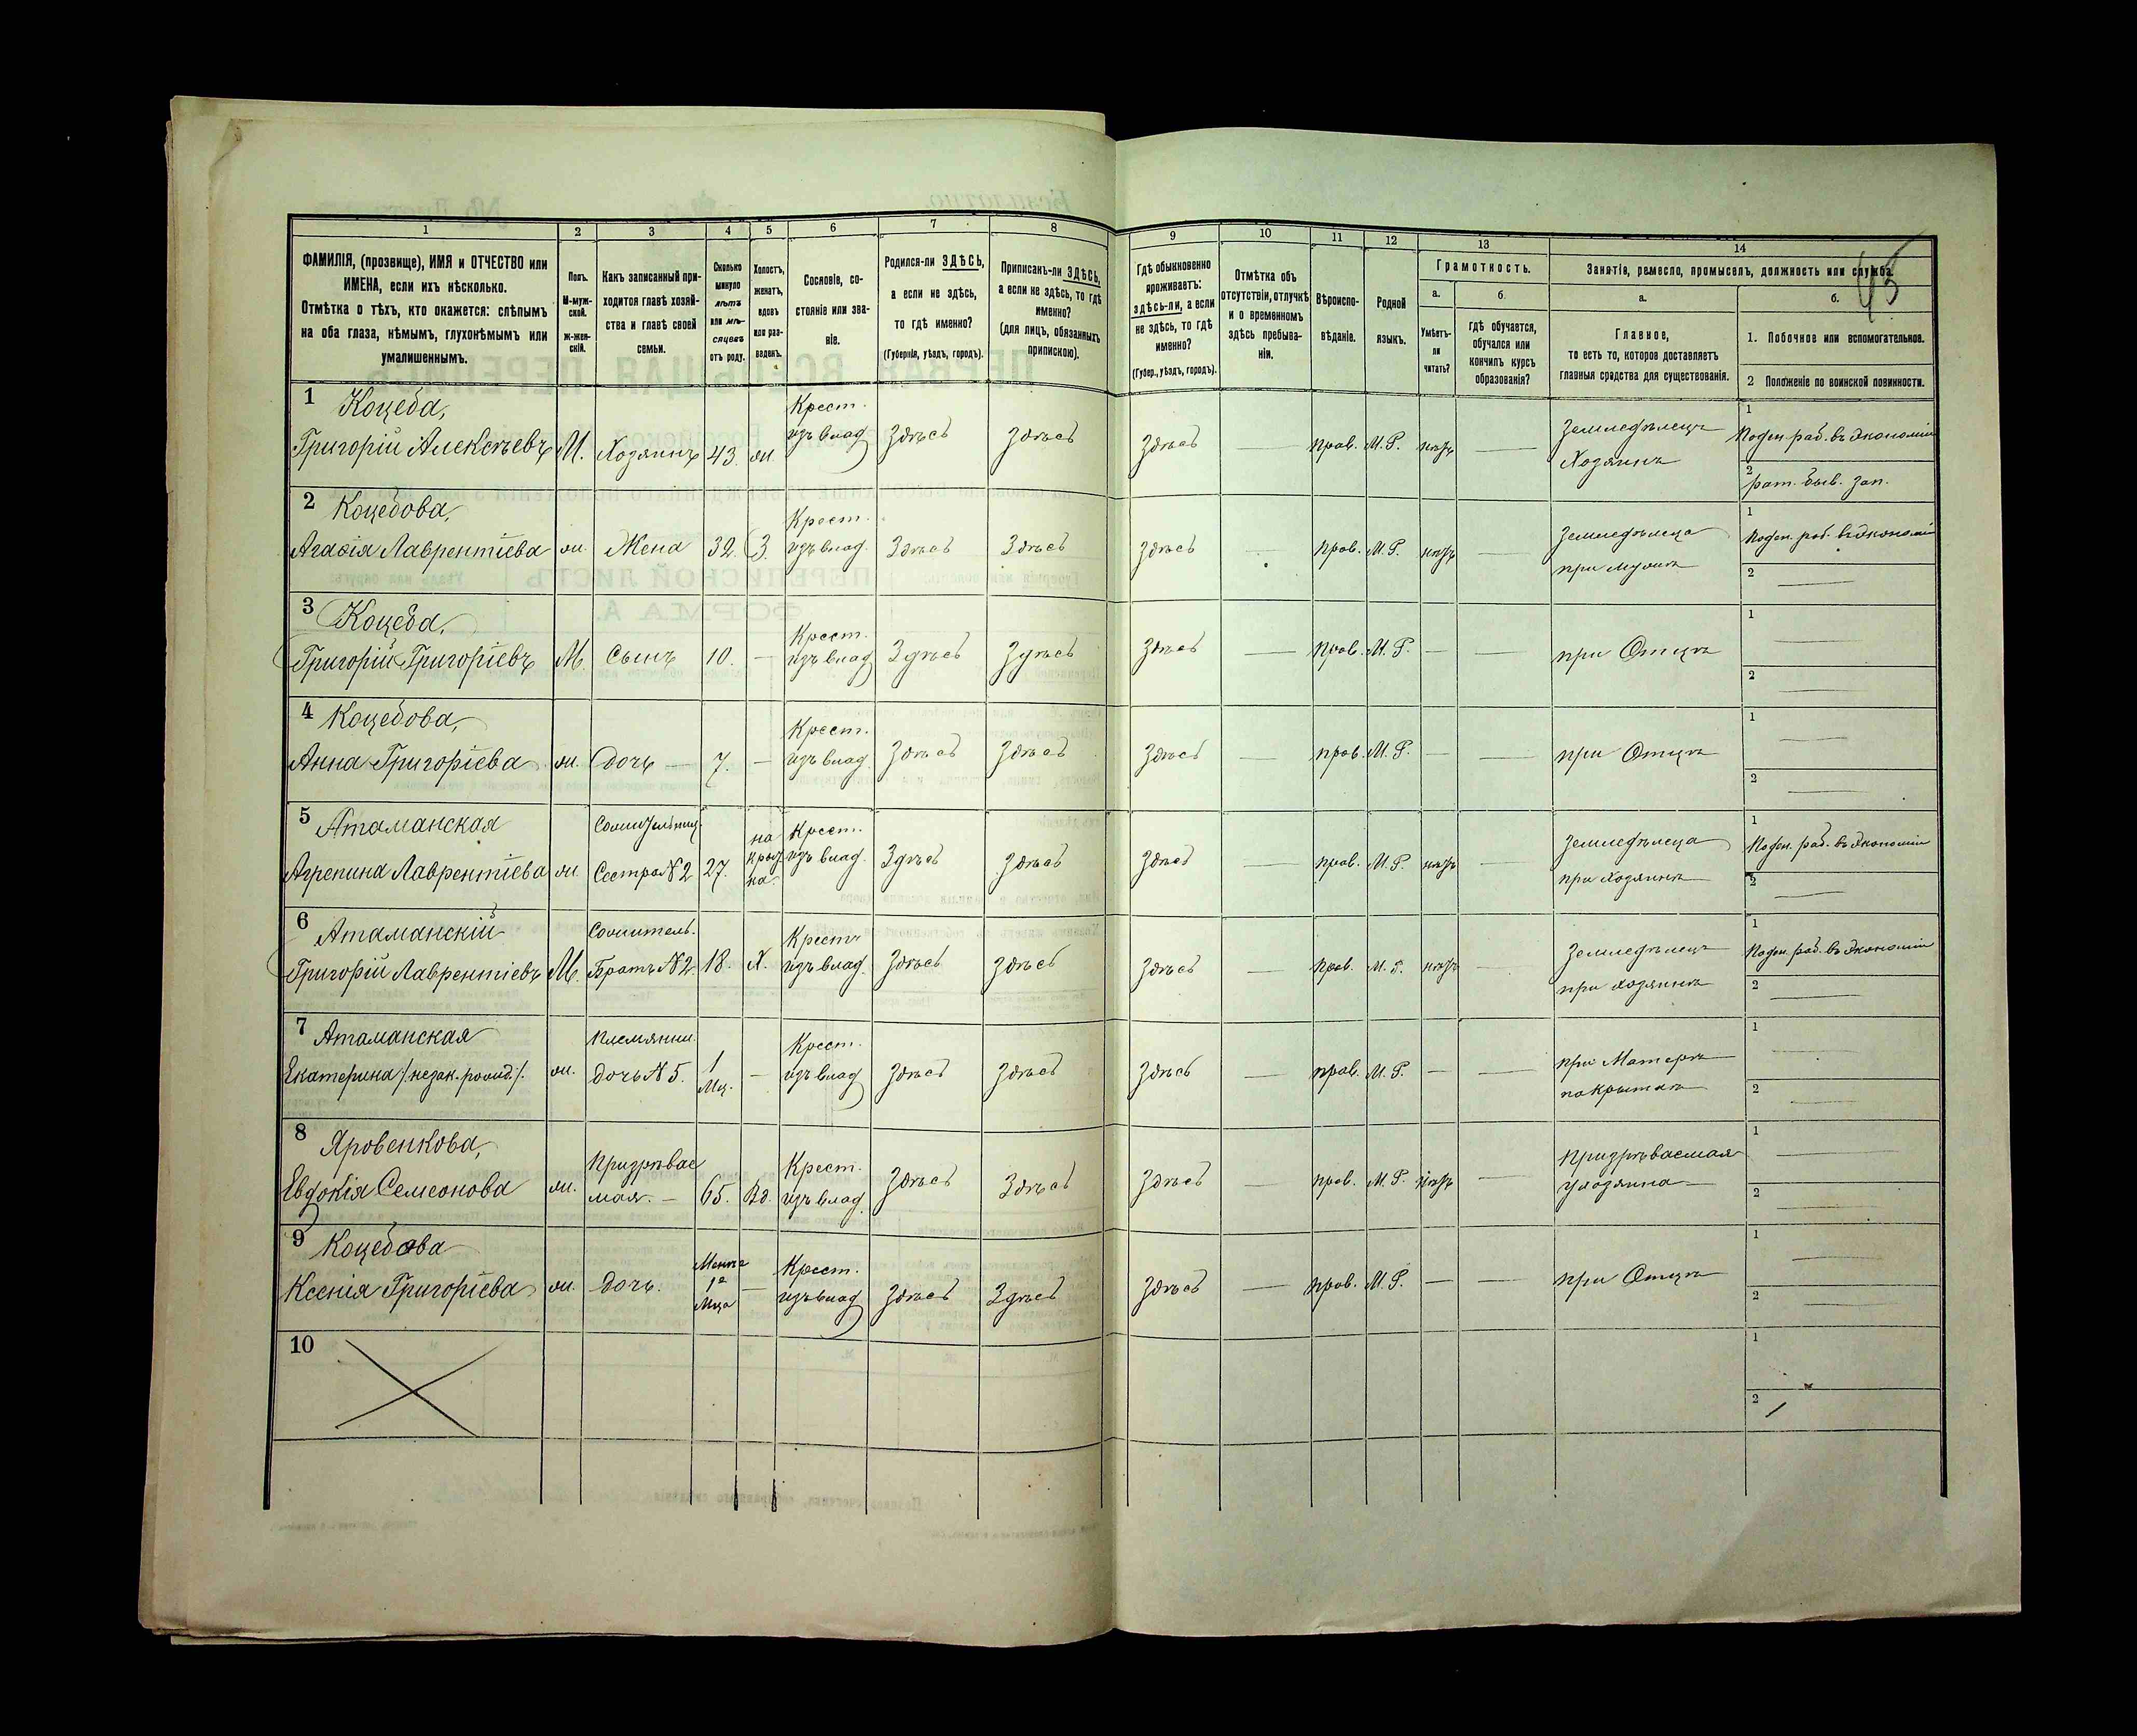 1 2 3 4 5 6 7 8 9 10 11 12 13 14
ФАМИЛІЯ, (прозвище), ИМЯ и ОТЧЕСТВО или
ИМЕНА, если ихъ нѣсколько.
Отмѣтка о тѣхъ, кто окажется: слѣпымъ
на оба глаза, нѣмымъ, глухонѣмымъ или
умалишеннымъ.
Полъ.
М-муж-
ской.
Ж-жен-
скій.
Какъ записанный при-
ходится главѣ хозяй-
ства и главѣ своей
семьи.
Сколько
минуло
лѣтъ
или мѣ-
сяцевъ
отъ роду.
Холостъ,
женатъ,
вдовъ
или раз-
веденъ.
Сословіе, со-
стояніе или зва-
ніе.
Родился-ли ЗДѢСЬ,
а если не здѣсь,
то гдѣ именно?
(Губернія, уѣздъ, городъ).
Приписанъ-ли ЗДѢСЬ,
а если не здѣсь, то гдѣ
именно?
(для лицъ, обязанныхъ
припискою).
Гдѣ обыкновенно
проживаетъ:
здѣсь-ли, а если
не здѣсь, то гдѣ
именно?
(Губер., уѣздъ, городъ).
Отмѣтка объ
отсутствіи, отлучкѣ
и о временномъ
здѣсь пребыва-
ніи.
Вѣроиспо-
вѣданіе.
Родной
языкъ.
Грамотность.
а.
Умѣетъ-
ли
читать?
б.
гдѣ обучается,
обучался или
кончилъ курсъ
образованія?
Занятіе, ремесло, промыселъ, должность или служба.
45
а.
Главное,
то есть то, которое доставляетъ
главныя средства для существованія.
б.
1. Побочное или вспомогательное.
2 Положеніе по воинской повинности.
1 Коцеба, Крест. Земледѣлецъ 1 Поден. раб. въ экономіи
Григорій Алексѣевъ М. Хозяинъ 43. ж. изъ влад. Здѣсь Здѣсь Здѣсь — прав. М. Р. нѣтъ — Хозяинъ 2 рат. быв. зап.
2 Коцебова, Крест. Земледѣлица 1 Поден. раб. въ экономіи
Агафія Лаврентіева ж. Жена 32. З. изъ влад. Здѣсь Здѣсь Здѣсь — прав. М. Р. нѣтъ — при мужѣ 2 —
3 Коцеба, Крест. 1 —
Григорій Григоріевъ М. Сынъ 10. — изъ влад. Здѣсь Здѣсь Здѣсь — прав. М. Р. — — при Отцѣ 2 —
4 Коцебова, Крест. 1 —
Анна Григоріева ж. Дочь — 7. — изъ влад. Здѣсь Здѣсь Здѣсь — прав. М. Р. — — при Отцѣ 2 —
5 Атаманская на Крест. Земледѣлица 1 Поден. раб. въ экономіи
Агрепина Лаврентіева ж. Сестра N 2 27. изъ влад. Здѣсь Здѣсь Здѣсь — прав. М. Р. нѣтъ — при хозяинѣ 2 —
6 Атаманскій Сожитель. Крест. Земледѣлецъ 1 Поден. раб. въ экономіи
Григорій Лаврентіевъ М. Братъ N 2. 18. Х. изъ влад. Здѣсь Здѣсь Здѣсь — прав. М. Р. нѣтъ — при хозяинѣ 2 —
7 Атаманская Племянни. Крест. при Матерѣ 1 —
Екатерина /незак. рожд./ ж. дочь N 5. 1 Мц. — изъ влад. Здѣсь Здѣсь Здѣсь — прав. М. Р. — — покрыткѣ 2 —
8 Яровенкова, Призрѣвае Крест. Призрѣваемая 1 —
Евдокія Семеонова ж. мая. — 65. Вд. изъ влад. Здѣсь Здѣсь Здѣсь — прав. М. Р. нѣтъ — у хозяина 2 —
9 Коцебова Менѣе 1го Мца Крест. 1 —
Ксенія Григоріева ж. Дочь. — изъ влад. Здѣсь Здѣсь Здѣсь — прав. М. Р. — — при Отцѣ 2 —
10 1
2